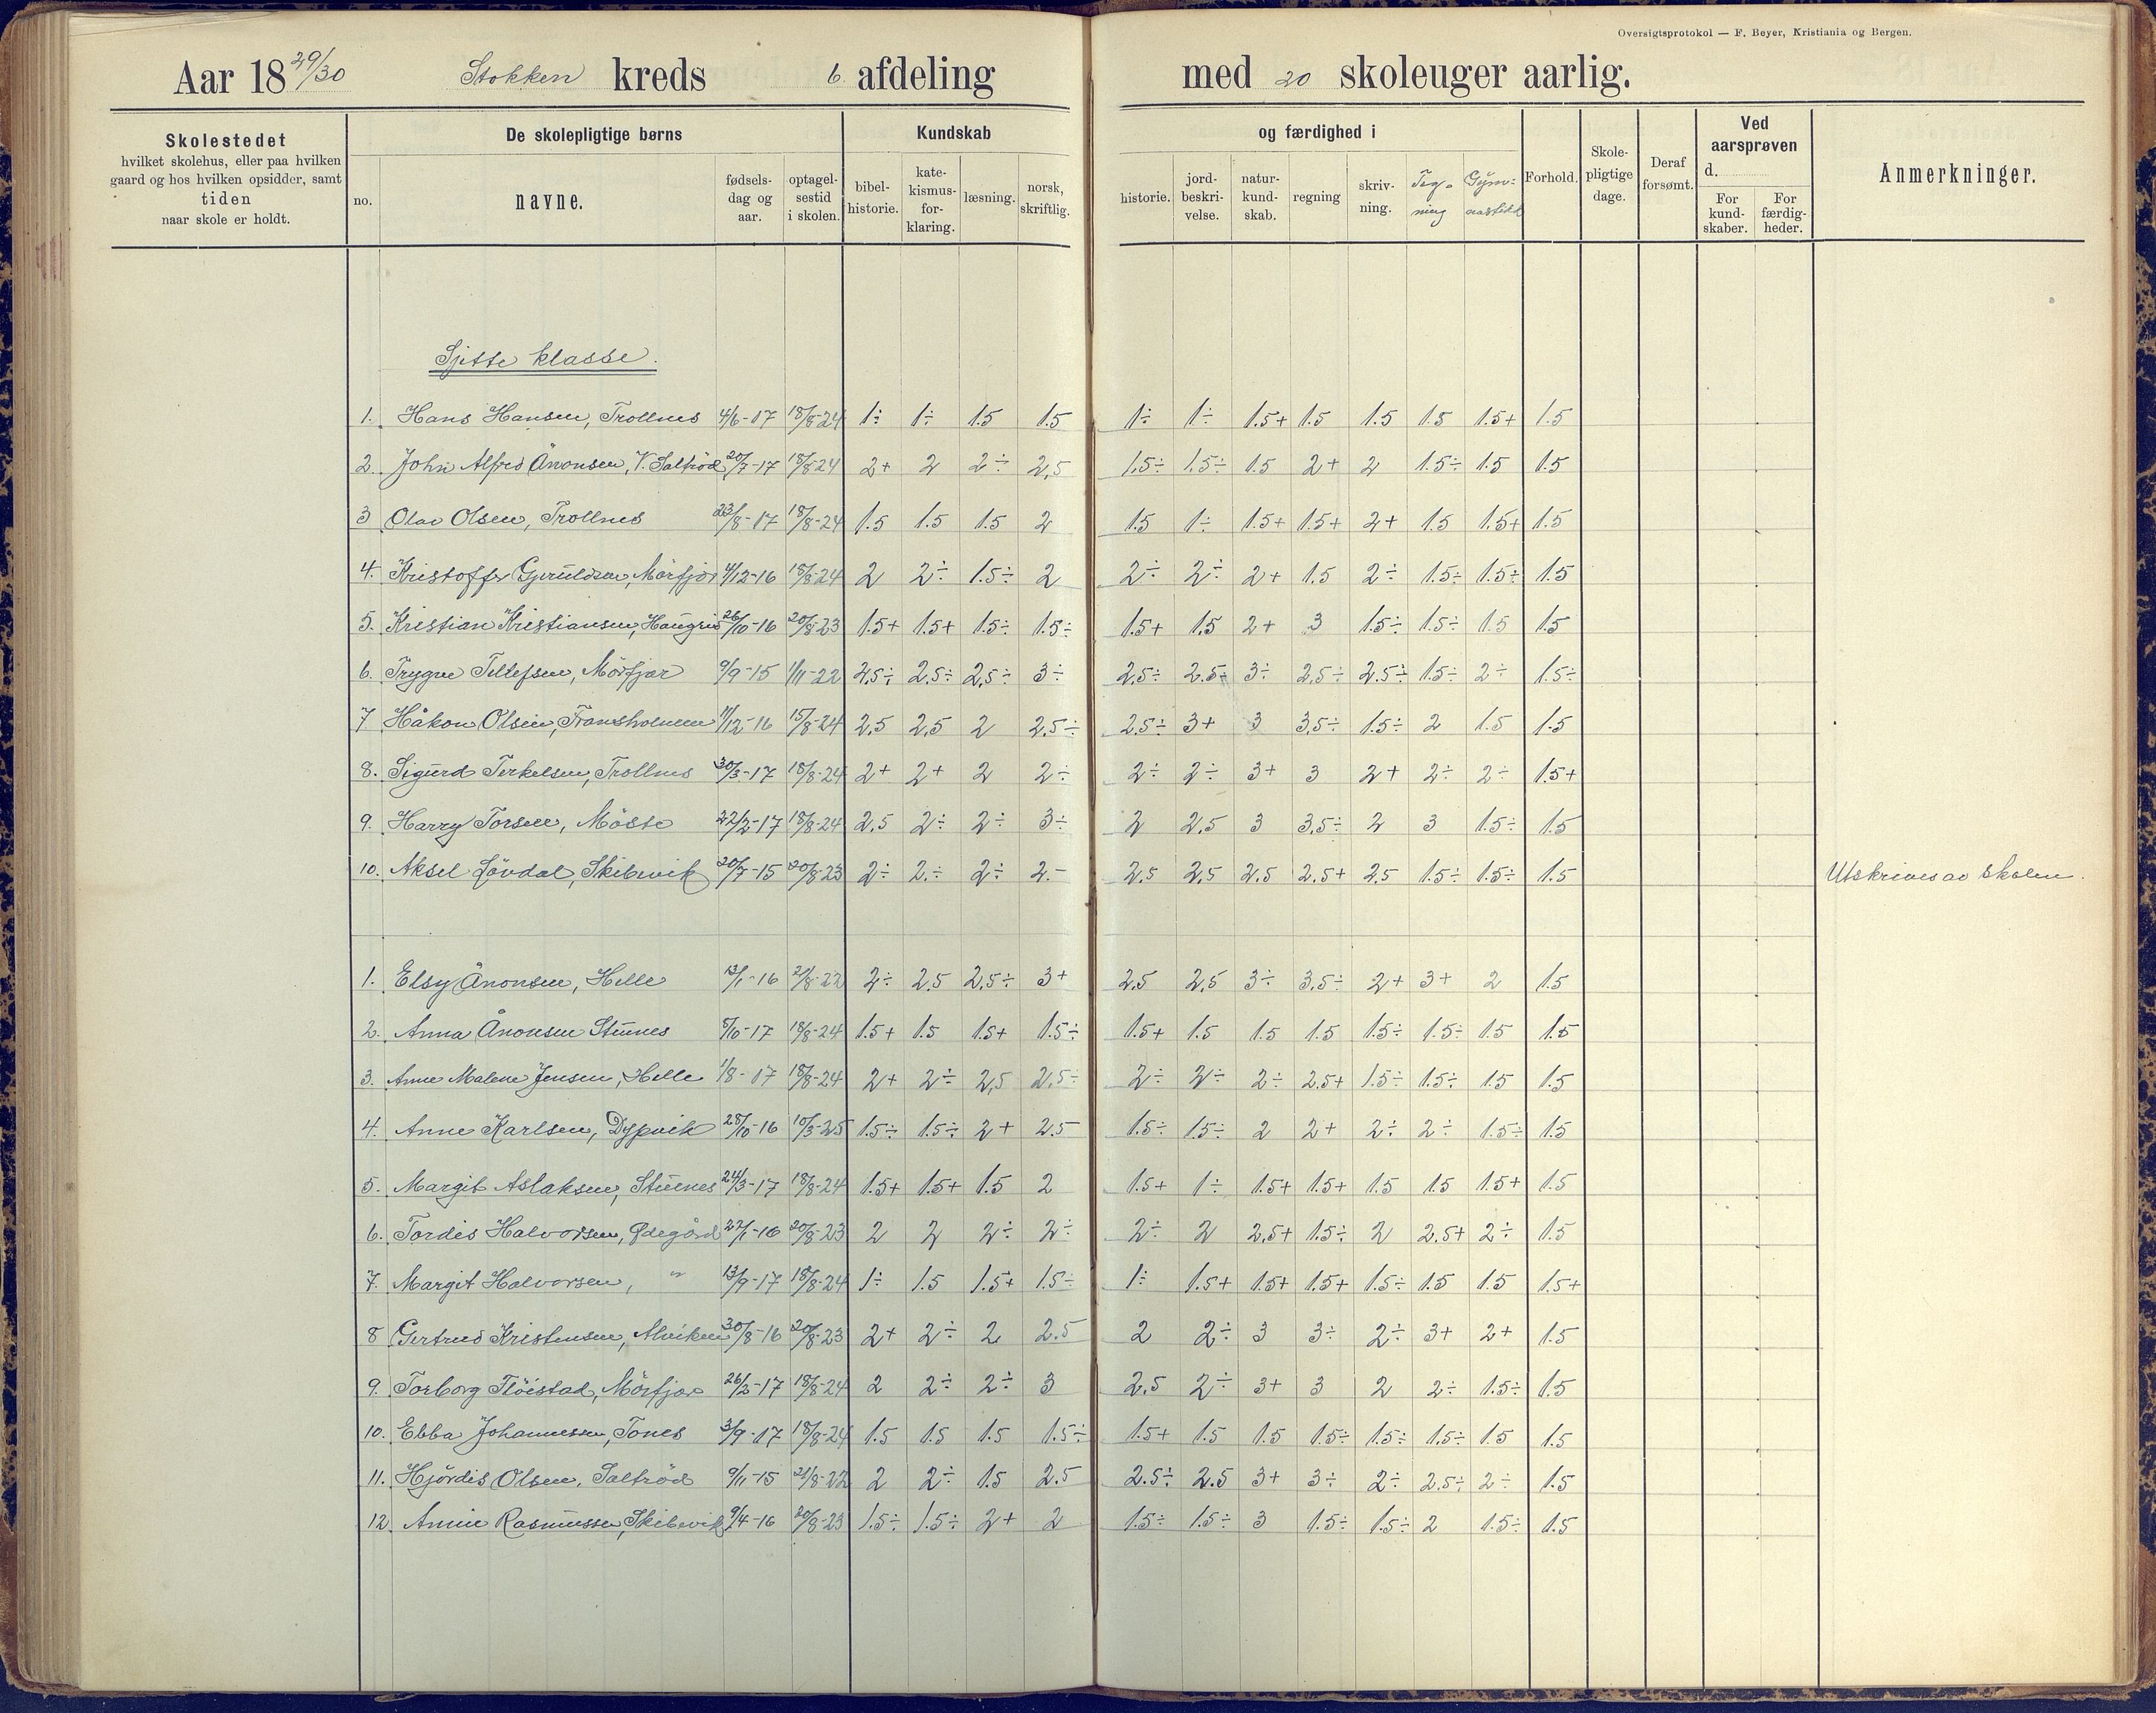 Oversigtsprotokol — F. Beyer, Kristiania og Bergen.
Aar 18 29/30 Stokken kreds 6. afdeling med 20 skoleuger aarlig.
Skolestedet
hvilket skolehus, eller paa hvilken
gaard og hos hvilken opsidder, samt
tiden
naar skole er holdt.
De skolepligtige børns
no.
navne.
fødsels-
dag og
aar.
optagel-
sestid
i skolen.
Kundskab
bibel-
historie.
kate-
kismus-
for-
klaring.
læsning.
norsk,
skriftlig.
og færdighed i
historie.
jord-
beskri-
velse.
natur-
kund-
skab.
regning
skriv-
ning.
Teg-
ning
Gym-
nastikk
Forhold.
Skole-
pligtige
dage.
Deraf
forsømt.
Ved
aarsprøven
d.
For
kund-
skaber.
For
færdig-
heder.
Anmerkninger.
Sjette klasse.
1. Hans Hansen, Trollnes 4/6-17 18/8-24 1÷ 1÷ 1.5 1.5 1÷ 1÷ 1.5+ 1.5 1.5 1.5 1.5+ 1.5
2. John Alfred Ånonsen, V. Saltrød 20/7-17 18/8-24 2+ 2 2÷ 2,5 1,5÷ 1.5÷ 1.5 2+ 2 1.5÷ 1.5 1.5
3 Olav Olsen, Trollnes 23/8-17 18/8-24 1.5 1.5 1.5 2 1.5 1÷ 1.5+ 1.5+ 2+ 1.5 1.5+ 1.5
4. Kristoffer Gjeruldsen, Mörfjær 4/12-16 18/8-24 2 2÷ 1.5÷ 2 2÷ 2÷ 2+ 1.5 2÷ 1.5÷ 1.5÷ 1.5
5. Kristian Kristiansen, 26/10-16 20/8-23 1.5+ 1.5+ 1.5÷ 1.5÷ 1.5+ 1.5 2+ 3 1.5÷ 1.5÷ 1.5 1.5
6. Trygve Tellefsen, Mörfjær 9/9-15 1/11-22 2,5÷ 2.5÷ 2,5÷ 3÷ 2.5÷ 2.5÷ 3÷ 2,5÷ 2.5÷ 1.5÷ 2÷ 1.5÷
7 Håkon Olsen, Fransholmen 11/12-16 15/8-24 2,5 2,5 2 2.5÷ 2.5÷ 3+ 3 3,5÷ 1.5÷ 2 1.5 1.5
8. Sigurd Terkelsen, Trollnes 30/3-17 18/8-24 2+ 2+ 2 2÷ 2÷ 2÷ 3+ 3 2+ 2÷ 2÷ 1.5+
9. Harry Torsen, Möste 22/2-17 18/8-24 2,5 2÷ 2÷ 3÷ 2 2,5 3 3,5÷ 2 3 1.5÷ 1.5
10. Aksel Lövdal, Skibevik 20/7-15 20/8-23 2÷ 2÷ 2÷ 2÷ 2,5 2,5 2,5 2,5+ 2,5 1.5÷ 1.5÷ 1.5 Utskrives av skolen.
1. Elsy Ånonsen, Helle 13/1-16 21/8-22 2÷ 2.5 2,5÷ 3+ 2.5 2,5 3÷ 3,5÷ 2+ 3+ 2 1.5
2. Anna Ånonsen Stuenes 8/10-17 18/8-24 1.5+ 1.5 1.5+ 1.5÷ 1.5+ 1.5 1.5 1.5 1.5÷ 1.5÷ 1.5 1.5
3. Anne Malene Jensen, Helle 1/8-17 18/8-24 2+ 2÷ 2,5 2,5÷ 2÷ 2÷ 2÷ 2.5+ 1.5÷ 1.5÷ 1.5 1.5
4. Anne Karlsen, Dypvik 28/10-16 10/3-25 1.5÷ 1.5÷ 2+ 2.5 1.5÷ 1.5÷ 2 2+ 2÷ 2÷ 1.5÷ 1.5
5. Margit Aslaksen, Stuenes 24/3-17 18/8-24 1.5+ 1.5+ 1.5 2 1.5+ 1÷ 1.5+ 1.5+ 1.5 1.5 1.5+ 1.5
6. Tordis Halvorsen, Ødegård 22/1-16 20/8-23 2 2 2÷ 2÷ 2÷ 2 2,5+ 1.5÷ 2 2.5+ 2÷ 1.5
7. Margit Halvorsen, " 13/9-17 18/8-24 1÷ 1.5 1.5+ 1.5÷ 1÷ 1.5+ 1.5+ 1.5+ 1.5÷ 1.5 1.5 1.5+
8 Gertrud Kristensen, Alviken 30/8-16 20/8-23 2+ 2÷ 2 2.5 2 2÷ 3 3÷ 2÷ 3+ 2+ 1.5
9. Torborg Flöistad, Mörfjær 26/2-17 18/8-24 2 2÷ 2÷ 3 2,5 2÷ 3+ 3 2 2÷ 1.5÷ 1.5
10. Ebba Johannessen, Tones 3/9-17 18/8-24 1.5 1.5 1.5 1.5÷ 1.5+ 1.5 1.5 1.5÷ 1.5÷ 1.5÷ 1.5 1.5
11. Hjördis Olsen, Saltröd 9/11-15 21/8-22 2 2÷ 1.5 2.5 2.5÷ 2.5 3+ 3÷ 2÷ 2.5÷ 2÷ 1.5
12. Annie Rasmussen, Skibevik 9/4-16 20/8-23 1.5÷ 1.5÷ 2+ 2 1.5÷ 1.5÷ 3 1.5÷ 1.5÷ 2 1.5÷ 1.5